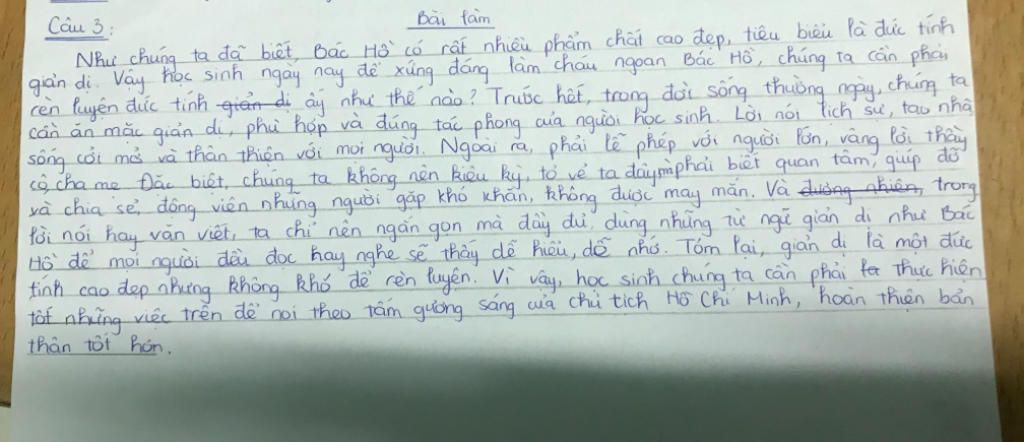 Câu 3: Bài làm
Như chúng ta đã biết, Bác Hồ có rất nhiều phẩm chất cao đẹp, tiêu biểu là đức tính
giản dị. Vậy học sinh ngày nay để xứng đáng làm cháu ngoan Bác Hồ, chúng ta cần phải
rèn luyện đức tính giản dị ấy như thế nào? Trước hết, trong đời sống thường ngày, chúng ta
cần ăn mặc giản dị, phù hợp và đúng tác phong của người học sinh. Lời nói lịch sự, tao nhã
sống cởi mở và thân thiện với mọi người. Ngoài ra, phải lễ phép với người lớn, vâng lời thầy
cô, cha mẹ. Đặc biệt, chúng ta không nên kiêu kỳ, tỏ vẻ ta đây mà phải biết quan tâm, giúp đỡ
và chia sẻ, động viên những người gặp khó khăn, không được may mắn. Và đương nhiên, trong
lời nói hay văn viết, ta chỉ nên ngắn gọn mà đầy đủ, dùng những từ ngữ giản dị như Bác
Hồ để mọi người đều đọc hay nghe sẽ thấy dễ hiểu, dễ nhớ. Tóm lại, giản dị là một đức
tính cao đẹp nhưng không khó để rèn luyện. Vì vậy, học sinh chúng ta cần phải thực hiện
tốt những việc trên để noi theo tấm gương sáng của chủ tịch Hồ Chí Minh, hoàn thiện bản
thân tốt hơn.